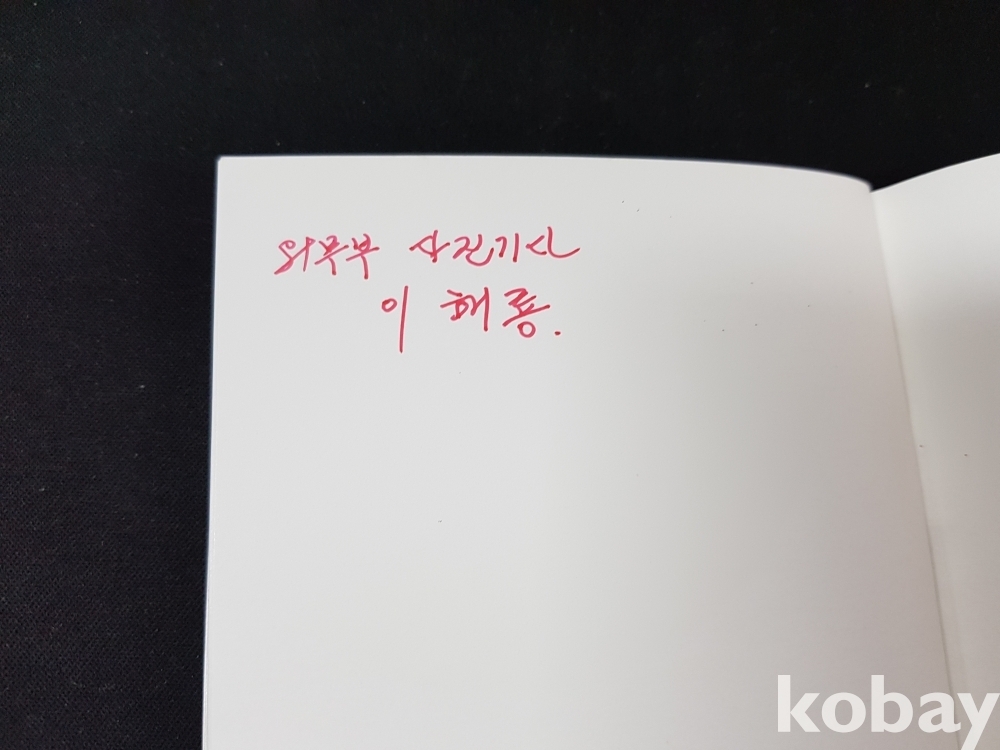 외무부 사진기사
이 해룡.
kobay